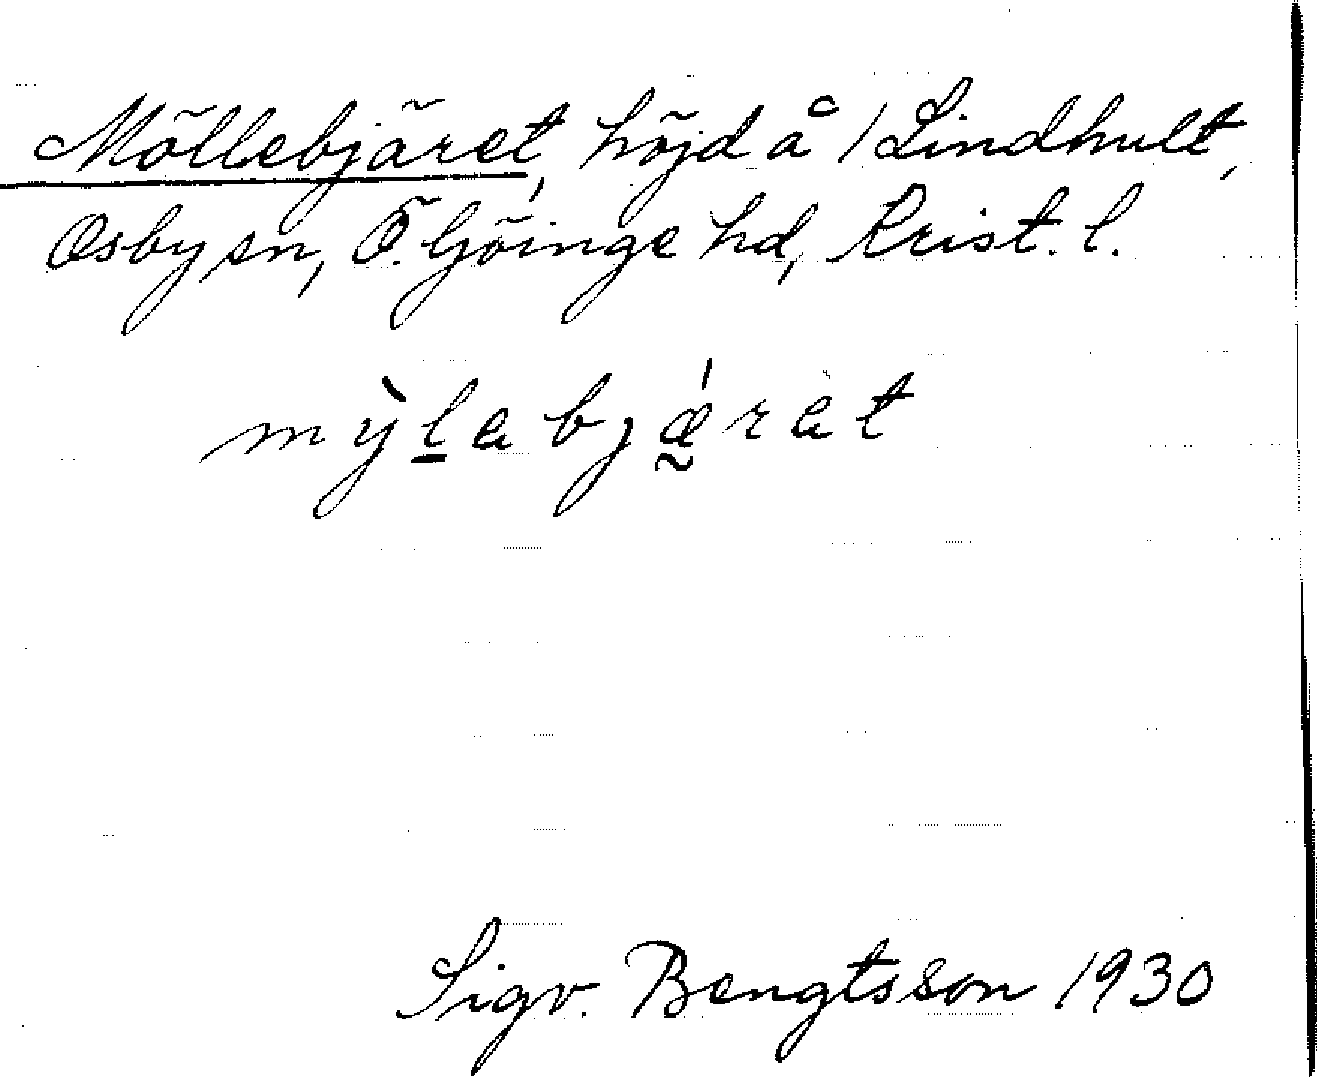 Möllebjäret, höjd å /Lindhult,
Osby sn, Ö. Göinge hd, Krist. l.
mỳl̲abjǽ̰rat
Sigv. Bengtsson 1930